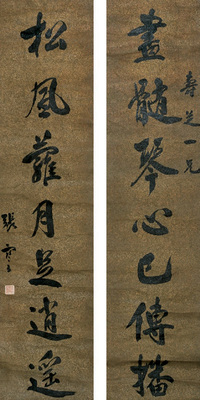 畫髓琴心已傳播
壽芝一兄
松風蘿月足逍遥
張謇